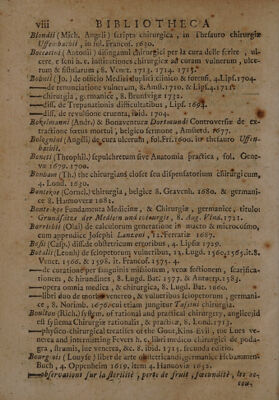 viii BIBLIOTHECA
Blondii (Mich. Angeli) scripta chirurgica, in Thesauro chirurgiæ
Uffenbachii, in fol. Francof. 1610.
Boccacini (Antonii) disingami chirurgici per la cura delle ferite, ul-
cere, e seni h. e. institutiones chirurgicæ ad curam vulnerum, ulcer-
um & fistularum c8. Venet. 1713. 1714. 1715.
Bohnii (Jo.) de officio Medici duplici clinico & forensi, 4. Lips. 1704.
—de renunciatione vulnerum, 8. Amst. 1710. & Lips. 4. 1711.
—chirurgia, germanice, 8. Brunsvigæ 1732.
—diss. de Trepanationis difficultatibus, Lips. 1694.
—diss. de revulsione cruenta, ibid. 1704.
Bokelmanni (Andr.) & Bonaventuræ Dortmundi Controversiæ de ex-
tractione fœtus mortui, belgico sermone, Amsterd. 1677.
Bolognini (Angeli) de cura ulcerum, fol. Frf. 1600. in thesauro Uffen-
bachii.
Boneti (Theophil.) sepulchretum sive Anatomia practica, fol. Gene-
va 1679. 1700.
Bonham (Th.) the chirurgians closet seu dispensatorium chirurgicum,
4. Lond. 1630.
Bontekoe (Cornel.) chirurgia, belgice 8. Gravenh. 1680. & germani-
ce 8. Hannoveræ 1681.
Bontekoe Fundamenta Medicinæ, & Chirurgiæ, germanice, titulo:
Grundsätze der Medicin und chirurgie, 8. Aug. Vind. 1721.
Borrichii (Olai) de calculorum generatione in macro & microcosmo,
cum appendice Josephi Lanzoni, 12. Ferrariæ 1687.
Bosii (Casp.) diss. de obstetricum erroribus, 4. Lipsiæ 1729.
Botalli (Leonh) de sclopetorum vulneribus, 12. Lugd. 1560, 1565. it. 8.
Venet. 1566, & 1598. it. Francof. 1575. 4.
—de curatione per sanguinis missionem, venæ sectionem, scarifica-
tionem, & hirundines, 8. Lugd. Bat. 1577. & Antuerp. 1583.
—opera omnia medica, & chirurgica, 8. Lugd. Bat. 1660.
—libri duo de motu venereo, & vulneribus sclopetorum, germani-
ce, 8. Norimb. 1676. cui etiam jungitur Tassini chirurgia.
Boulton (Rich.) system of rational and practical chirurgery, anglice, id
est systema Chirurgiæ rationalis, & practicæ, 8. Lond. 1713.
—physico-chirurgical treatises of the Gout, Kins-Evil, the Lues ve-
nerea and intermitting Fevers h. e. libri medico chirurgici de poda-
gra, strumis, lue venerea, &c. 8. ibid. 1715. secunda editio.
Bourgeois (Louyse) liber de arte obstetricandi, germanice Hebammen-
Buch, 4. Oppenheim 1619. item 4. Hannoviæ 1652.
—observations sur la sterilité, perte de fruit, fœcundité, les ac-
cou-